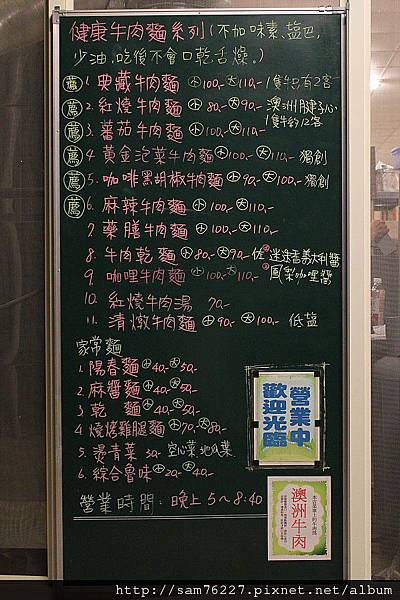 健康牛肉麵系列(不加味素、鹽巴,
少油,吃後不會口乾舌燥。)
薦 1. 典藏牛肉麵 小100,- 大110,- 1隻牛只有2客
薦 2. 紅燒牛肉麵 小80,- 大90,- 澳洲腱子心
1隻牛約12客
薦 3. 蕃茄牛肉麵 小100,- 大110,-
薦 4. 黃金泡菜牛肉麵 小100,- 大110,- 獨創
薦 5. 咖啡黑胡椒牛肉麵 小90,- 大100,- 獨創
薦 6. 麻辣牛肉麵 小100,- 大110,-
7. 藥膳牛肉麵 小100,- 大110,-
8. 牛肉乾麵 小80,- 大90,- 佐 迷迭香義大利醬
9. 咖哩牛肉麵 小100,- 大110,- 鳳梨咖哩醬
10. 紅燒牛肉湯 70,-
11. 清燉牛肉麵 小90,- 大100,- 低鹽
家常麵
1. 陽春麵 小40,- 大50,-
2. 麻醬麵 小40,- 大50,-
3. 乾 麵 小40,- 大50,-
4. 燒烤雞腿麵 小70,- 大80,-
5. 燙青菜 30,- 空心菜、地瓜葉
6. 綜合魯味 小20,- 大40,-
營業時間: 晚上 5~8:40
營業中
歡迎光臨
澳洲牛肉
http://sam76227.pixnet.net/album